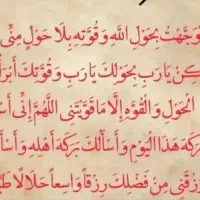 وَجَّهْتُ بِحَوْلِ اللَّهِ وَقُوَّتِهِ بِلَا حَوْلٍ مِنِّي
كِنْ بِحَوْلِكَ يَا رَبِّ وَقُوَّتِكَ أَبْرَأُ
الْحَوْلِ وَالْقُوَّةِ إِلَّا مَا قَوَّيْتَنِي اللَّهُمَّ إِنِّي أَسْ
بَرَكَةَ هَذَا الْيَوْمِ وَأَسْأَلُكَ بَرَكَةَ أَهْلِهِ وَأَسْأَ
زُقَنِي مِنْ فَضْلِكَ رِزْقاً وَاسِعاً حَلَالاً طَ